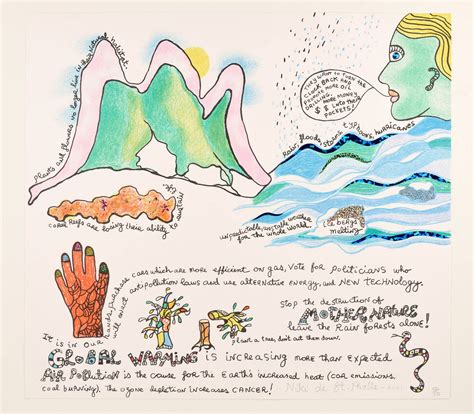 plants and flowers no longer live in their natural habitat.
THEY WANT TO TURN THE
CLOCK BACK AND
PERMIT MORE OIL
DRILLING.
MORE MONEY
$ $ INTO their
POCKETS!
Rain, floods, storms, typhoons, hurricanes
coral Reefs are losing their ability to sustain
life.
unpredictable, unstable weather
for the whole world
ice bergs
melting
It is in our hands, purchase cars which are more efficient on gas, VOTE for POLITICIANS who
will enact antipollution laws and use alternative energy, and NEW TECHNOLOGY.
Stop the destruction of
MOTHER NATURE
leave the Rain forests alone!
Plant a tree, don't cut them down.
GLOBAL WARMING is INCREASING more than expected
AIR POLLUTION is the cause for the Earth's increased heat (car emissions,
coal burning), the ozone depletion increases CANCER!
Niki de St. Phalle